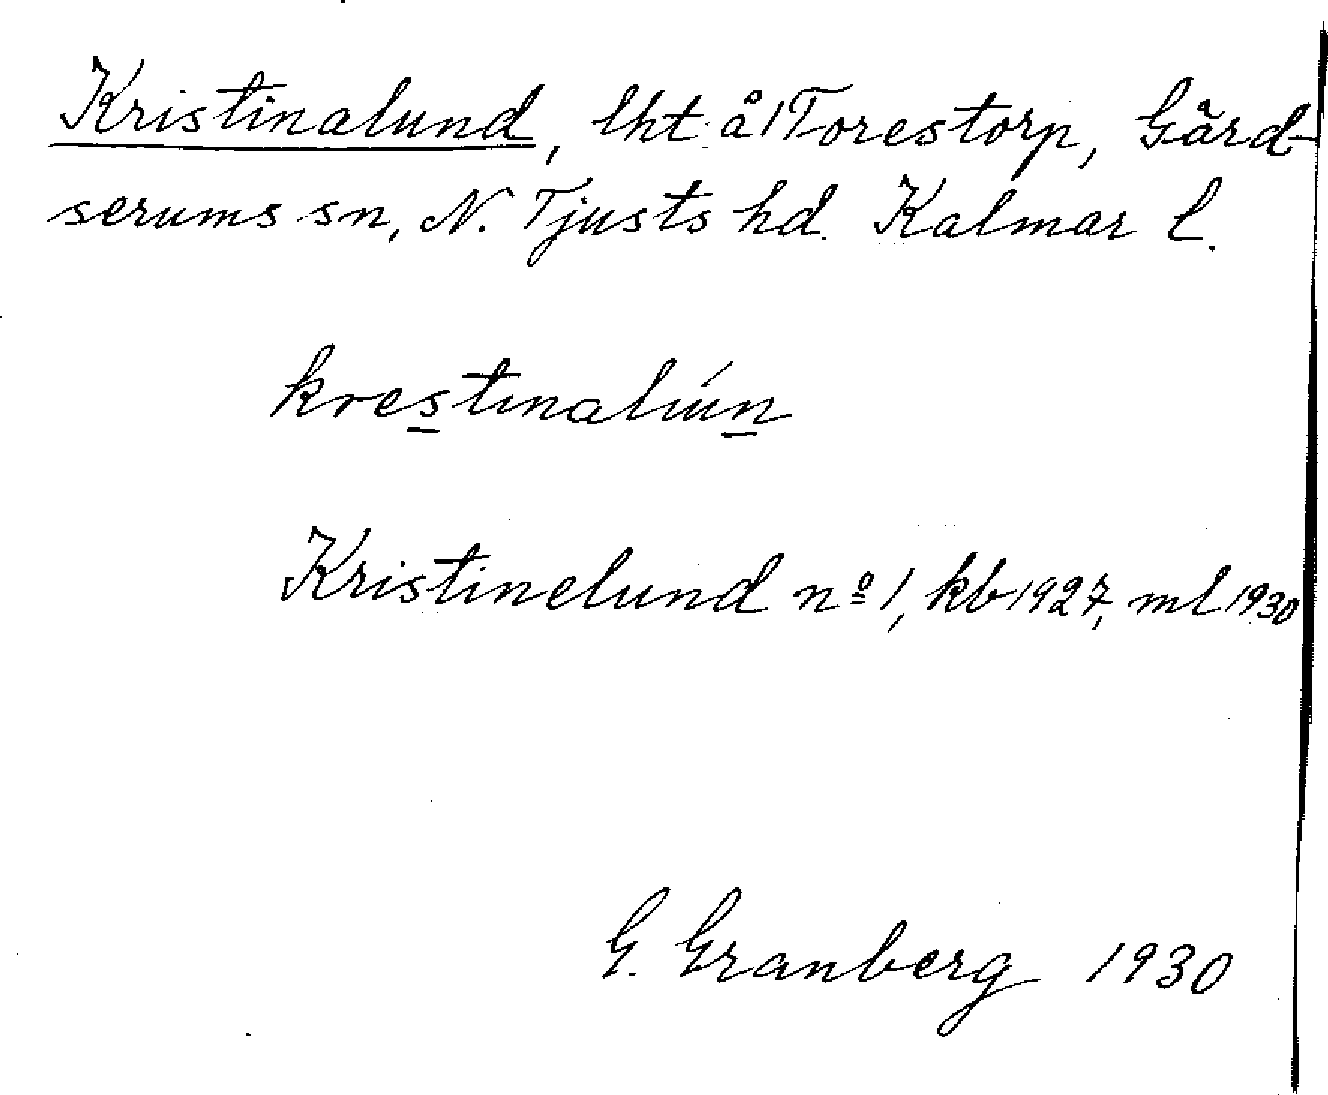 Kristinalund, lht å 1 Torestorp, Gärd-
serums sn, N. Tjusts hd. Kalmar l.
krestinalún
Kristinelund nº 1, kb 1927, ml 1930
G. Granberg 1930